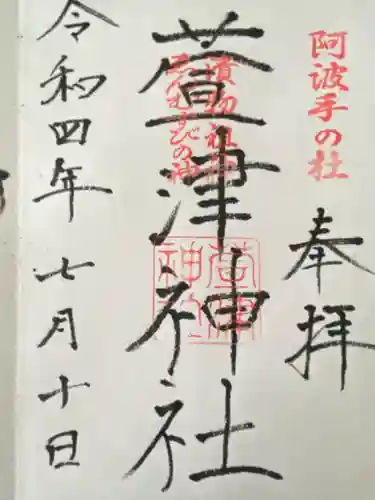 阿波手の杜
奉拝
漬物祖神
ゑんむすびの神
萱津神社
令和四年七月十日